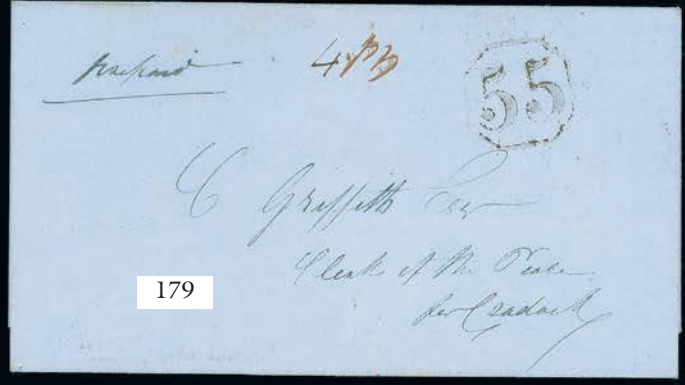 Prepaid 4 55
C Griffith Esqr
Clerk of the Peace
for Cradock
179